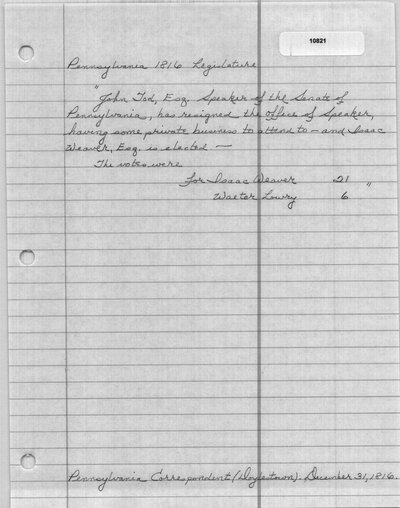 10821
Pennsylvania 1816 Legislature
"John Tod, Esq. Speaker of the Senate of
Pennsylvania, has resigned the office of Speaker,
having some private business to attend to — and Isaac
Weaver, Esq. is elected —
The votes were
for Isaac Weaver 21 "
Walter Lowry 6
Pennsylvania Correspondent (Doylestown). December 31, 1816.